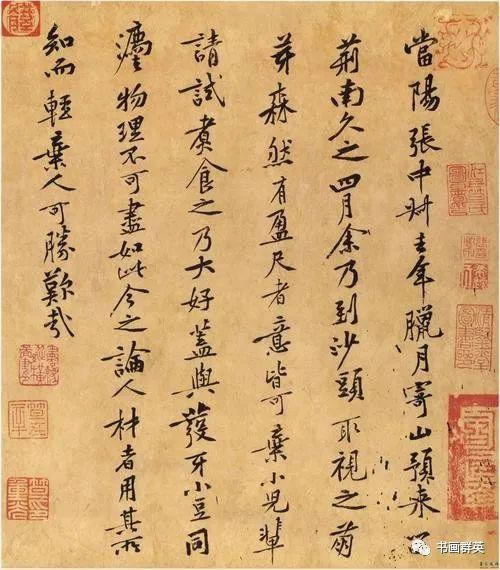 當陽張中叔去年臘月寄山預來留
荊南久之四月余乃到沙頭取視之萌
芽森然有盈尺者意皆可棄小兒輩
請試煑食之乃大好蓋與發牙小豆同
灋物理不可盡如此今之論人材者用其所
知而輕棄人可勝歎哉
书画群英